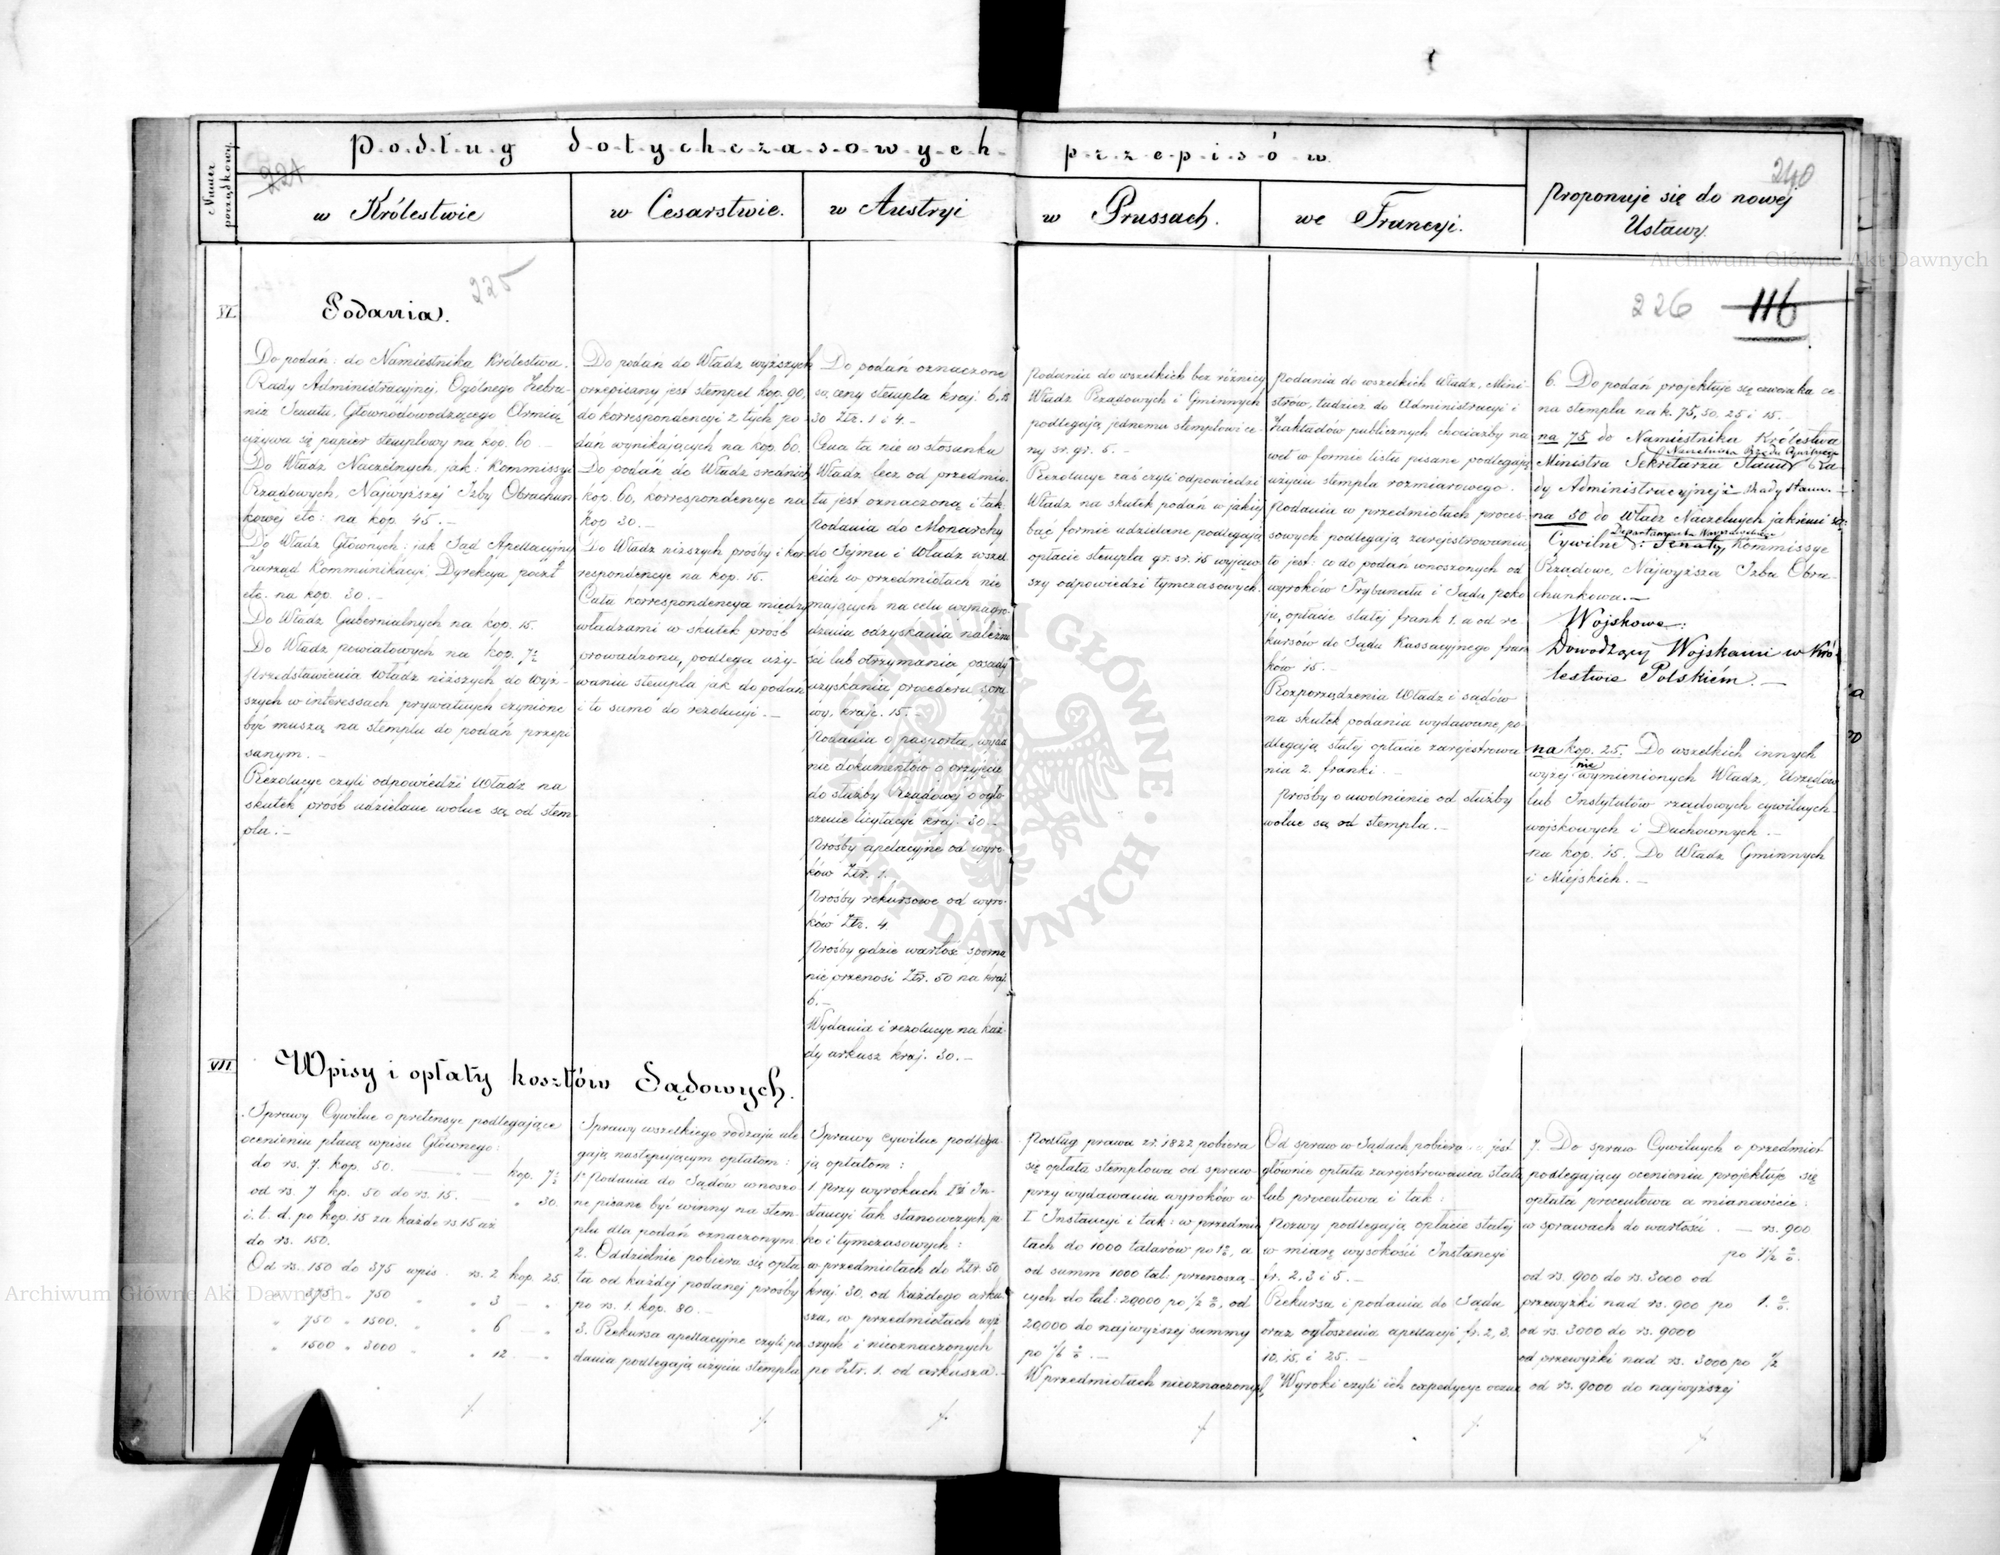 Podług dotychczasowych przepisów
Numer porządkowy
w Królestwie
w Cesarstwie.
w Austryi
w Prussach.
we Francyi.
Proponuje się do nowej
Ustawy.
224
240
225
226 116
VI.
Podania.
Do podań: do Namiestnika Królestwa.
Rady Administracyjnej, Ogólnego Zebra-
nia Senatu, Głównodowodzącego Armią
używa się papier stemplowy na kop. 60 —
Do Władz Naczelnych, jak: Kommissyi
Rządowych, Najwyższej Izby Obrachun
kowej etc: na kop. 45. —
Do Władz Głównych: jak Sąd Apellacyjny
Zarząd Kommunikacyi, Dyrekcya poczt
etc. na kop. 30. —
Do Władz Gubernialnych na kop. 15.
Do Władz powiatowych na kop. 7½
Przedstawienia Władz niższych do Wyż-
szych w interessach prywatnych czynione
być muszą na stemplu do podań przepi
sanym. —
Rezolucye czyli odpowiedzi Władz na
skutek prośb udzielane wolne są od stem-
pla. —
Do podań do Władz wyższych
przepisany jest stempel kop. 90,
do korrespondencyi z tych po-
dań wynikających na kop. 60.
Do podań do Władz średnich
kop. 60, korrespondencye na
kop 30. —
Do Władz niższych prośby i kor
respondencye na kop. 15.
Cała korrespondencya między
władzami w skutek prośb
prowadzona, podlega uży-
waniu stempla jak do podań
i to samo do rezolucyi. —
Do podań oznaczone
są ceny stempla kraj. 6, 15
30 Złr. 1 i 4. —
Cena ta nie w stosunku
Władz lecz od przedmio-
tu jest oznaczoną i tak
Podania do Monarchy
do Sejmu i Władz wszel
kich w przedmiotach nie
mających na celu wynagro-
dzenia odzyskania należno
ści lub otrzymania posady
uzyskania procederu spra
wy, kraj. 15. —
Podania o pasporta, wyda
nie dokumentów o przyjęcie
do służby Rządowej o ogło-
szenie licytacyi kraj. 30. —
Prośby apelacyjne od wyro-
ków Złr. 1.
Prośby rekursowe od wyro-
ków Złr. 4.
Prośby gdzie wartość sporna
nie przenosi Złr. 50 na kraj.
6. —
Wydania i rezolucye na każ-
dy arkusz kraj. 30. —
Podania do wszelkich bez różnicy
Władz Rządowych i Gminnych
podlegają jednemu stemplowi ce-
ny sr. gr. 5. —
Rezolucye zaś czyli odpowiedzi
Władz na skutek podań w jakiej
bądź formie udzielane podlegają
opłacie stempla gr. sr. 15 wyjąw
szy odpowiedzi tymczasowych.
Podania do wszelkich Władz, Mini-
strów, tudzież do Administracyi i
Zakładów publicznych chociażby na
wet w formie listu pisane podlegają
użyciu stempla rozmiarowego.
Podania w przedmiotach proces-
sowych podlegają zarejestrowaniu
to jest: co do podań wnoszonych od
wyroków Trybunału i Sądu poko
ju, opłacie stałej frank 1. a od re
kursów do Sądu Kassacyjnego fran
ków 15. —
Rozporządzenia Władz i sądów
na skutek podania wydawane po
dlegają stałej opłacie zarejestrowa
nia 2. franki. —
Prośby o uwolnienie od służby
wolne są od stempla. —
6. Do podań projektuje się czworaka ce-
na stempla na k. 75, 50. 25 i 15. —
na 75 do Namiestnika Królestwa
Ministra Sekretarza Stanu Ra
dy Administracyjnej i Rady Stanu. —
na 50 do Władz Naczelnych jakiemi są:
Cywilne: Senaty, Kommissye
Rządowe, Najwyższa Izba Obra-
chunkowa. —
Wojskowe:
Dowodzący Wojskami w Kró-
lestwie Polskiém. —
na kop. 25. Do wszelkich innych
nie
wyżej wymienionych Władz, Urzędów
lub Instytutów rządowych cywilnych
wojskowych i Duchownych. —
na kop. 15. Do Władz Gminnych
i Miejskich. —
VII
Wpisy i opłaty kosztów Sądowych.
Sprawy Cywilne o pretensye podlegające
ocenieniu płacą wpisu Głównego:
do rs. 7. kop. 50. — — kop. 7½
od rs. 7 kp. 50 do rs. 15. — " 30.
i. t. d. po kop. 15 za każde rs. 15 aż
do rs. 150.
Od rs. 150 do 375 wpis. rs. 2 kop. 25.
" 375 " 750 " " 3 — "
" 750 " 1500. " " 6 — "
" 1500 " 3000 " " 12 — "
Sprawy wszelkiego rodzaju ule
gają następującym opłatom:
1o Podania do Sądów wnoszo-
ne pisane być winny na stem-
plu dla podań oznaczonym
2. Oddzielnie pobiera się opła
ta od każdej podanej prośby
po rs. 1. kop. 80. —
3. Rekursa apellacyjne czyli po
dania podlegają użyciu stempla
Sprawy cywilne podlega-
ją opłatom:
1 Przy wyrokach Iéj In-
stancyi tak stanowczych ja-
ko i tymczasowych:
w przedmiotach do Złr. 50
kraj. 30. od każdego arku-
sza, w przedmiotach wyż
szych i nieoznaczonych
po Złr. 1. od arkusza. —
Podług prawa z r. 1822 pobiera
się opłata stemplowa od spraw
przy wydawaniu wyroków w
I Instancyi i tak: w przedmio
tach do 1000 talarów po 1%, a
od summ 1000 tal. przenoszą-
cych do tal: 20,000 po ½ %, od
20,000 do najwyższej summy
po 1/6 %. —
W przedmiotach nieoznaczonych,
Od spraw w Sądach pobiera się jest
głównie opłata zarejestrowania stała
lub procentowa i tak:
Pozwy podlegają opłacie stałej
w miarę wysokości Instancyi
fr. 2. 3 i 5. —
Rekursa i podania do Sądu
oraz ogłoszenia apellacyi fr. 2, 3.
10, 15. i 25. —
Wyroki czyli ich expedycye
7. Do spraw Cywilnych o przedmiot
podlegający ocenieniu projektuje się
opłata procentowa a mianowicie:
w sprawach do wartości — rs. 900
po 1½ %.
od rs. 900 do rs. 3000 od
przewyżki nad rs. 900 po 1. %.
od rs. 3000 do rs. 9000
od przewyżki nad rs. 3000 po ½
od rs. 9000 do najwyższej
Archiwum Główne Akt Dawnych
Archiwum Główne Akt Dawnych
ARCHIWUM GŁÓWNE AKT DAWNYCH